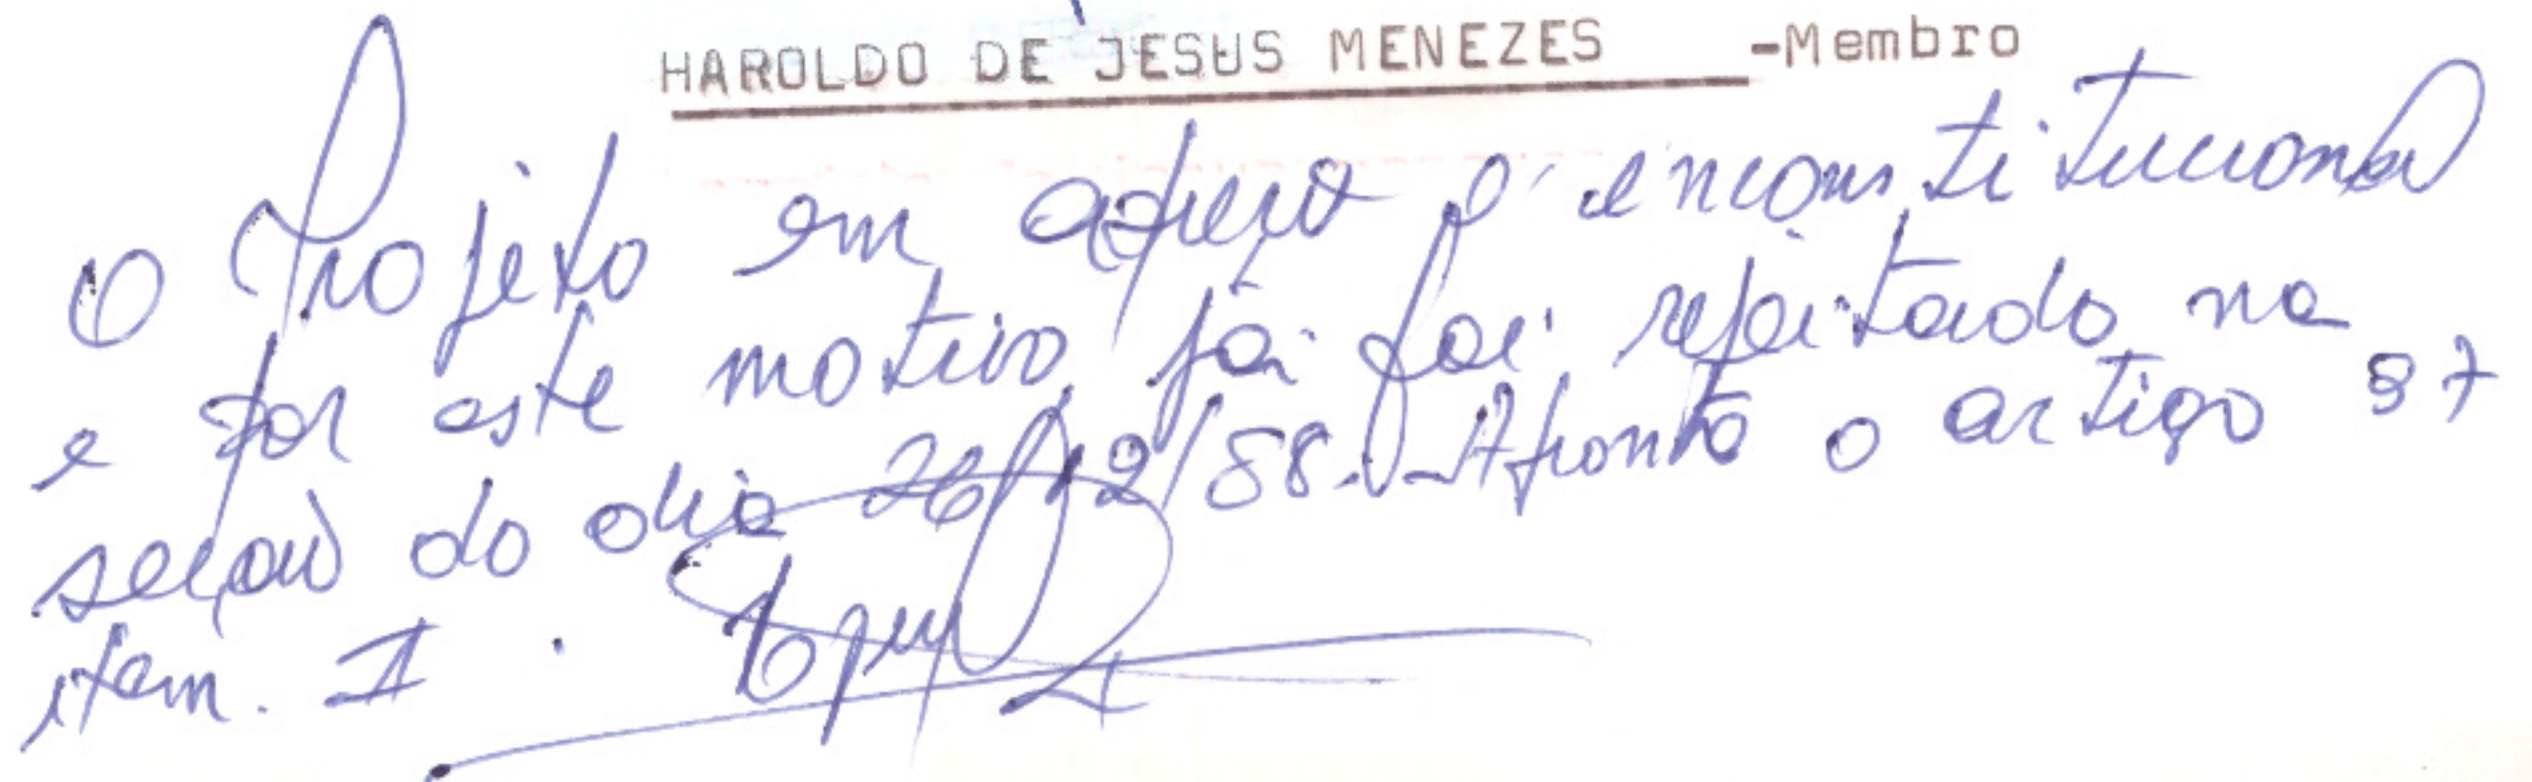 HAROLDO DE JESUS MENEZES -Membro
O Projeto em apreço é enconstitucional
e por este motivo, já foi rejeitado na
seção do dia 26/12/88. Afronta o artigo 37
item. I.